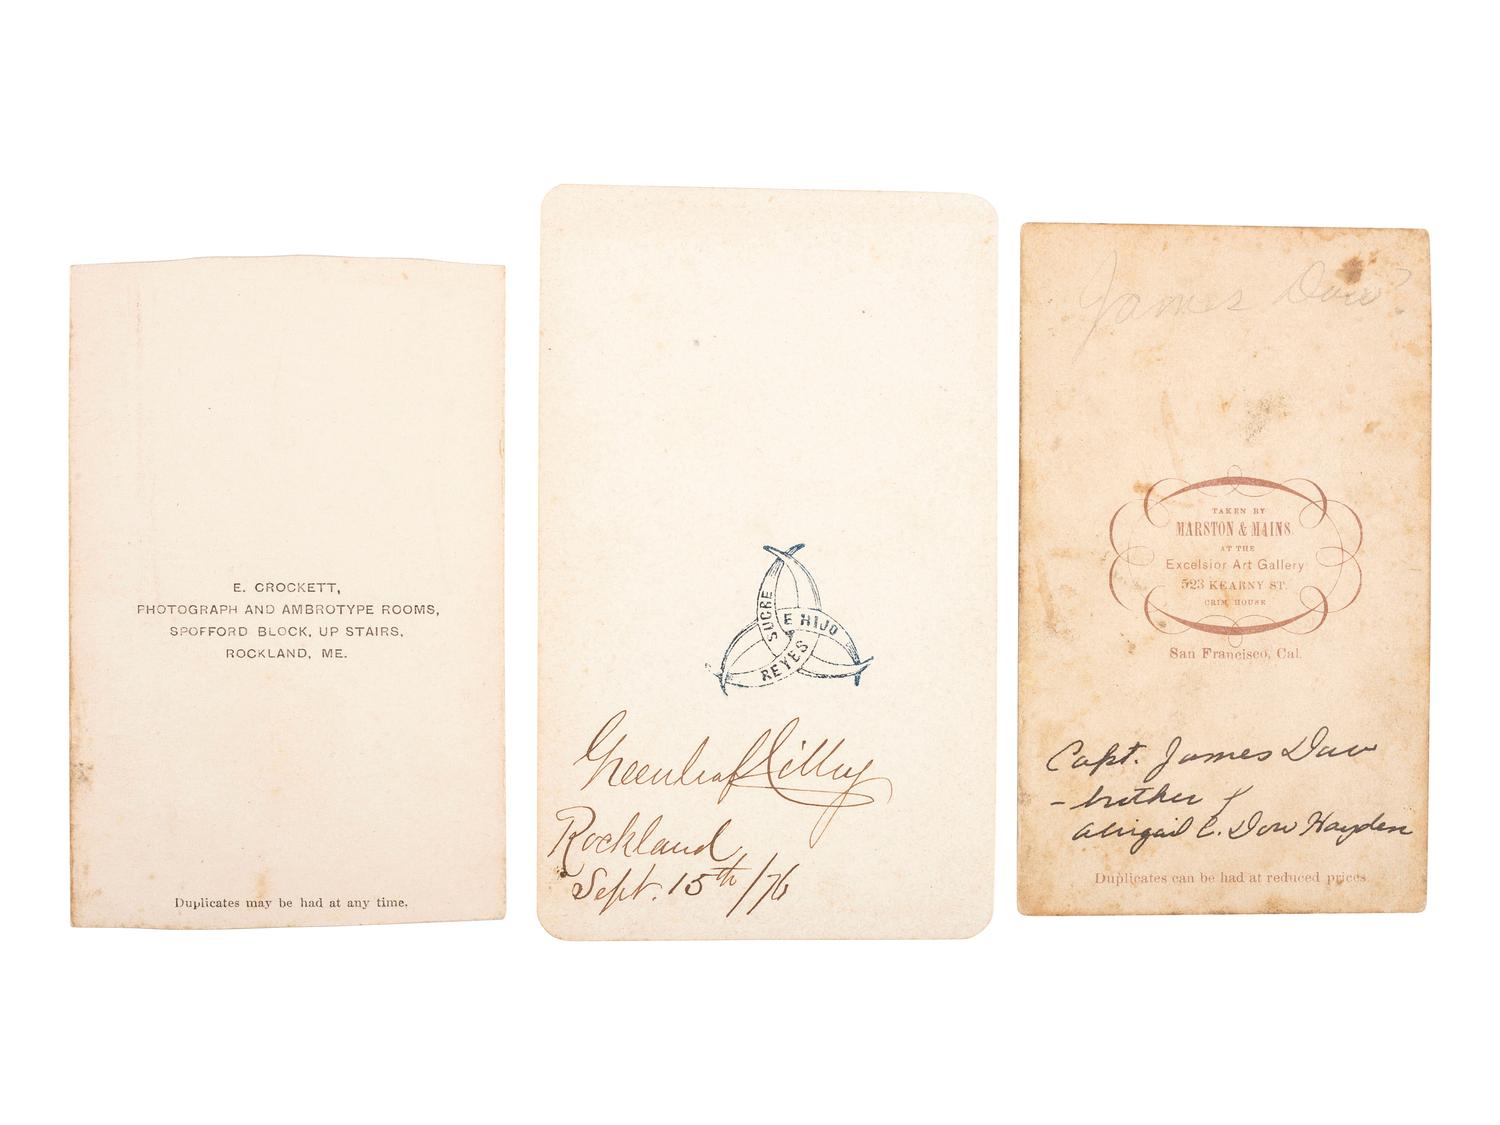 E. CROCKETT,
PHOTOGRAPH AND AMBROTYPE ROOMS,
SPOFFORD BLOCK, UP STAIRS,
ROCKLAND, ME.
Duplicates may be had at any time.
SUCRE
E HIJO
REYES
Greenleaf Cilley
Rockland
Sept. 15th/76
James Dow?
TAKEN BY
MARSTON & MAINS
AT THE
Excelsior Art Gallery
523 KEARNY ST.
CRIM HOUSE
San Francisco, Cal.
Capt. James Dow
- brother of
Abigail C. Dow Hayden
Duplicates can be had at reduced prices